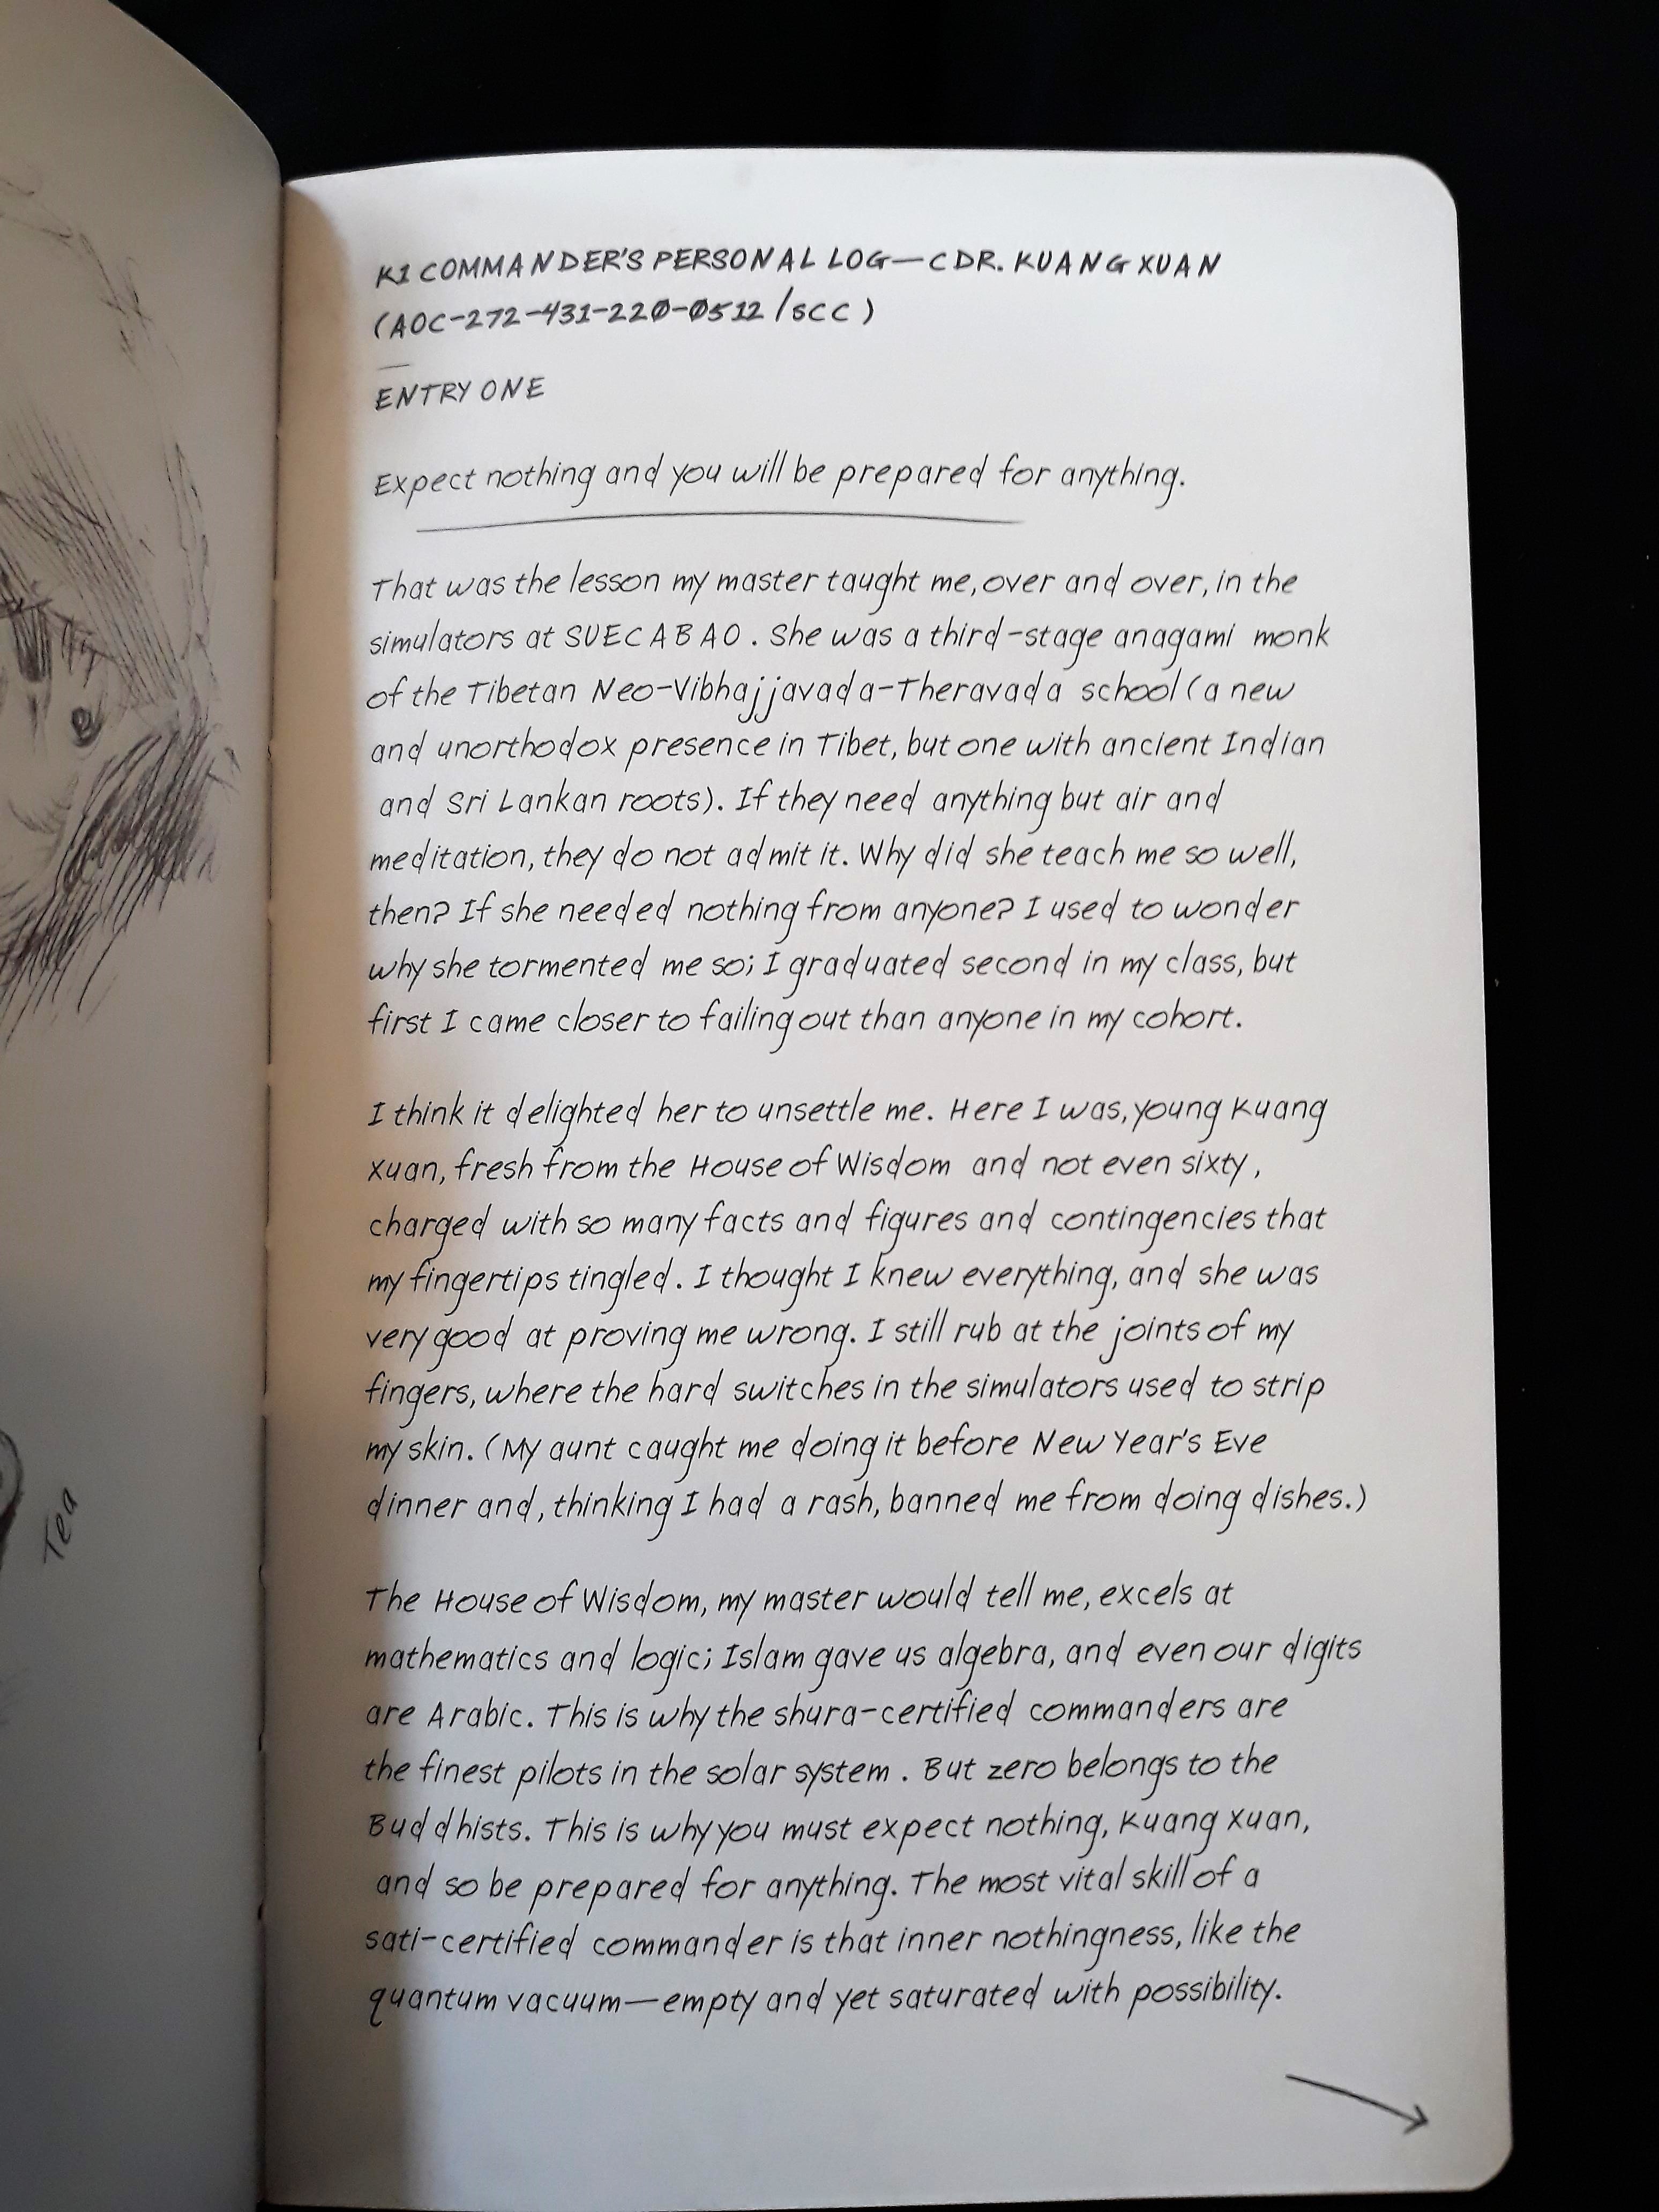 Tea
K1 COMMANDER'S PERSONAL LOG—CDR. KUANG XUAN
(AOC-272-431-220-0512/SCC)
ENTRY ONE
Expect nothing and you will be prepared for anything.
That was the lesson my master taught me, over and over, in the
simulators at SUECABAO. She was a third-stage anagami monk
of the Tibetan Neo-Vibhajjavada-Theravada school (a new
and unorthodox presence in Tibet, but one with ancient Indian
and Sri Lankan roots). If they need anything but air and
meditation, they do not admit it. Why did she teach me so well,
then? If she needed nothing from anyone? I used to wonder
why she tormented me so; I graduated second in my class, but
first I came closer to failing out than anyone in my cohort.
I think it delighted her to unsettle me. Here I was, young Kuang
Xuan, fresh from the House of Wisdom and not even sixty,
charged with so many facts and figures and contingencies that
my fingertips tingled. I thought I knew everything, and she was
very good at proving me wrong. I still rub at the joints of my
fingers, where the hard switches in the simulators used to strip
my skin. (My aunt caught me doing it before New Year's Eve
dinner and, thinking I had a rash, banned me from doing dishes.)
The House of Wisdom, my master would tell me, excels at
mathematics and logic; Islam gave us algebra, and even our digits
are Arabic. This is why the shura-certified commanders are
the finest pilots in the solar system. But zero belongs to the
Buddhists. This is why you must expect nothing, Kuang Xuan,
and so be prepared for anything. The most vital skill of a
sati-certified commander is that inner nothingness, like the
quantum vacuum—empty and yet saturated with possibility.